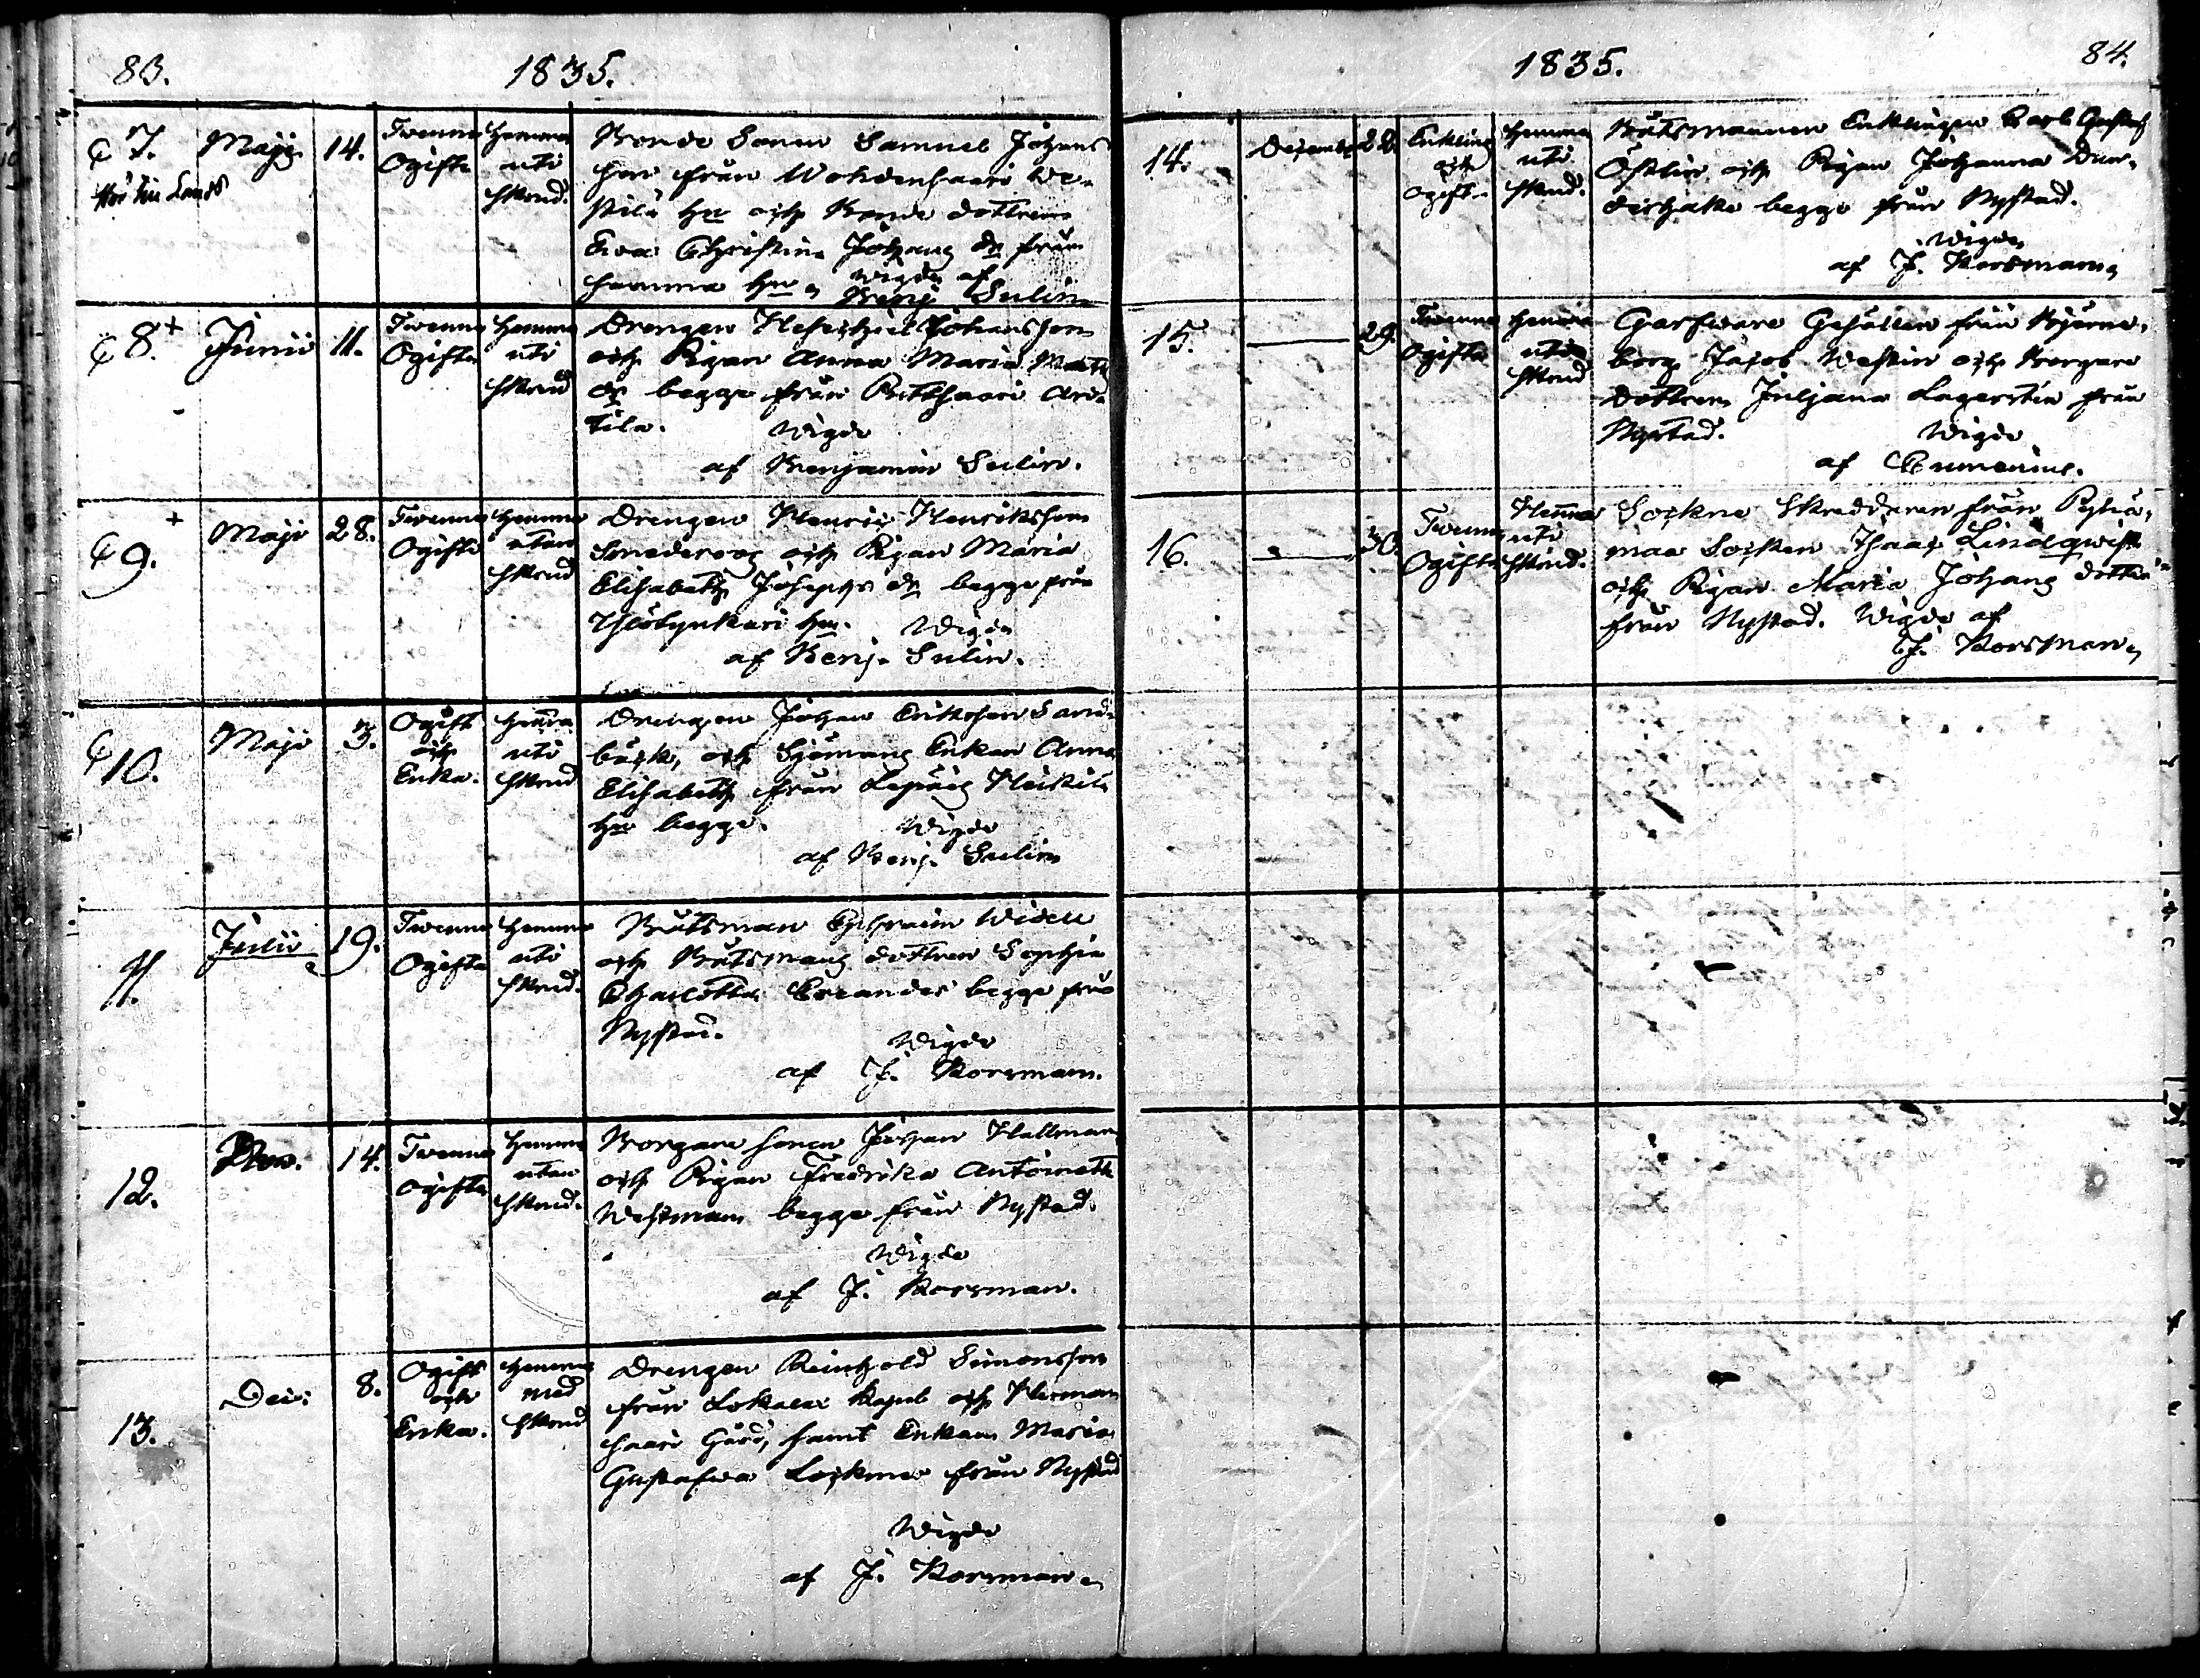 83.
1835.
7. Maji 14. Twenne Ogifte Hemma uti Hkrud.
Bonde Sonen Samuel Johans
son från Wohdensaari We-
pilä hn och Bonde dottren
Eva Christina Johans dr från
samma hn. Wigde af
Benj. Sulin
8. Junii 11. Twenne Ogifte Hemma uti Hkrud
Drengen Heskiel Johansson
och Pigan Anna Maria Matts
dr begge från Pittsaari
tila. Wigde
af Benjamin Sulin.
9. Maji 28. Twenne Ogifte Hemma utan Hkrud
Drengen Henric Henriksson
Smederoog och Pigan Maria
Elisabeth Josephs dr begge från
hn. Wigde
af Benj. Sulin.
10. Maji 3. Ogift och Enka. Hemma uti Hkrud
Drengen Johan Eriksson Sand-
bäck, och Sjömans Enkan Anna
Elisabeth från Lepäis Heikilä
hn begge. Wigde
af Benj. Sulin
11. Julii 19. Twenne Ogifte Hemma uti Hkrud.
Båtsman Ephraim Widell
och Båtsmans dottren Sophia
Charlotta begge från
Nystad. Wigde
af J. Korsman.
12. Nov. 14. Twenne ogifte Hemma utan Hkrud.
Borgare sonen Johan Hallman
och Pigan Fredrika Antoinetta
Westman begge från Nystad.
Wigde
af J. Korsman.
13. Dec: 8. Ogift och Enka. Hemma med Hkrud
Drengen Reinhold Simonsson
från Lokalax Kapel och Herman
saari Gård, samt Enkan Maria
Gustafwa från Nystad
Wigde
af J. Korsman
1835.
84.
14. December 22. Enkling och ogift Hemma uti Hkrud.
Båtsmannen Enklingen Carl Gustaf
Östlin och Pigan Johanna Dun-
derhake begge från Nystad.
Wigde
af J. Korsman
15. 29. Twenne Ogifte Hemma utan Hkrud
Garfware Gesällen från Björne-
borg Jacob Westlin och Borgare
Dottren Juljana Lagerstén från
Nystad. Wigde
af Cumenius.
16. 30. Twenne Ogifte Hemma uti Hkrud.
Sockne Skreddaren från Pyhä-
maa Socken Isaac Lindqwist
och Pigan Maria Johans dotter
från Nystad. Wigde af
J. Korsman